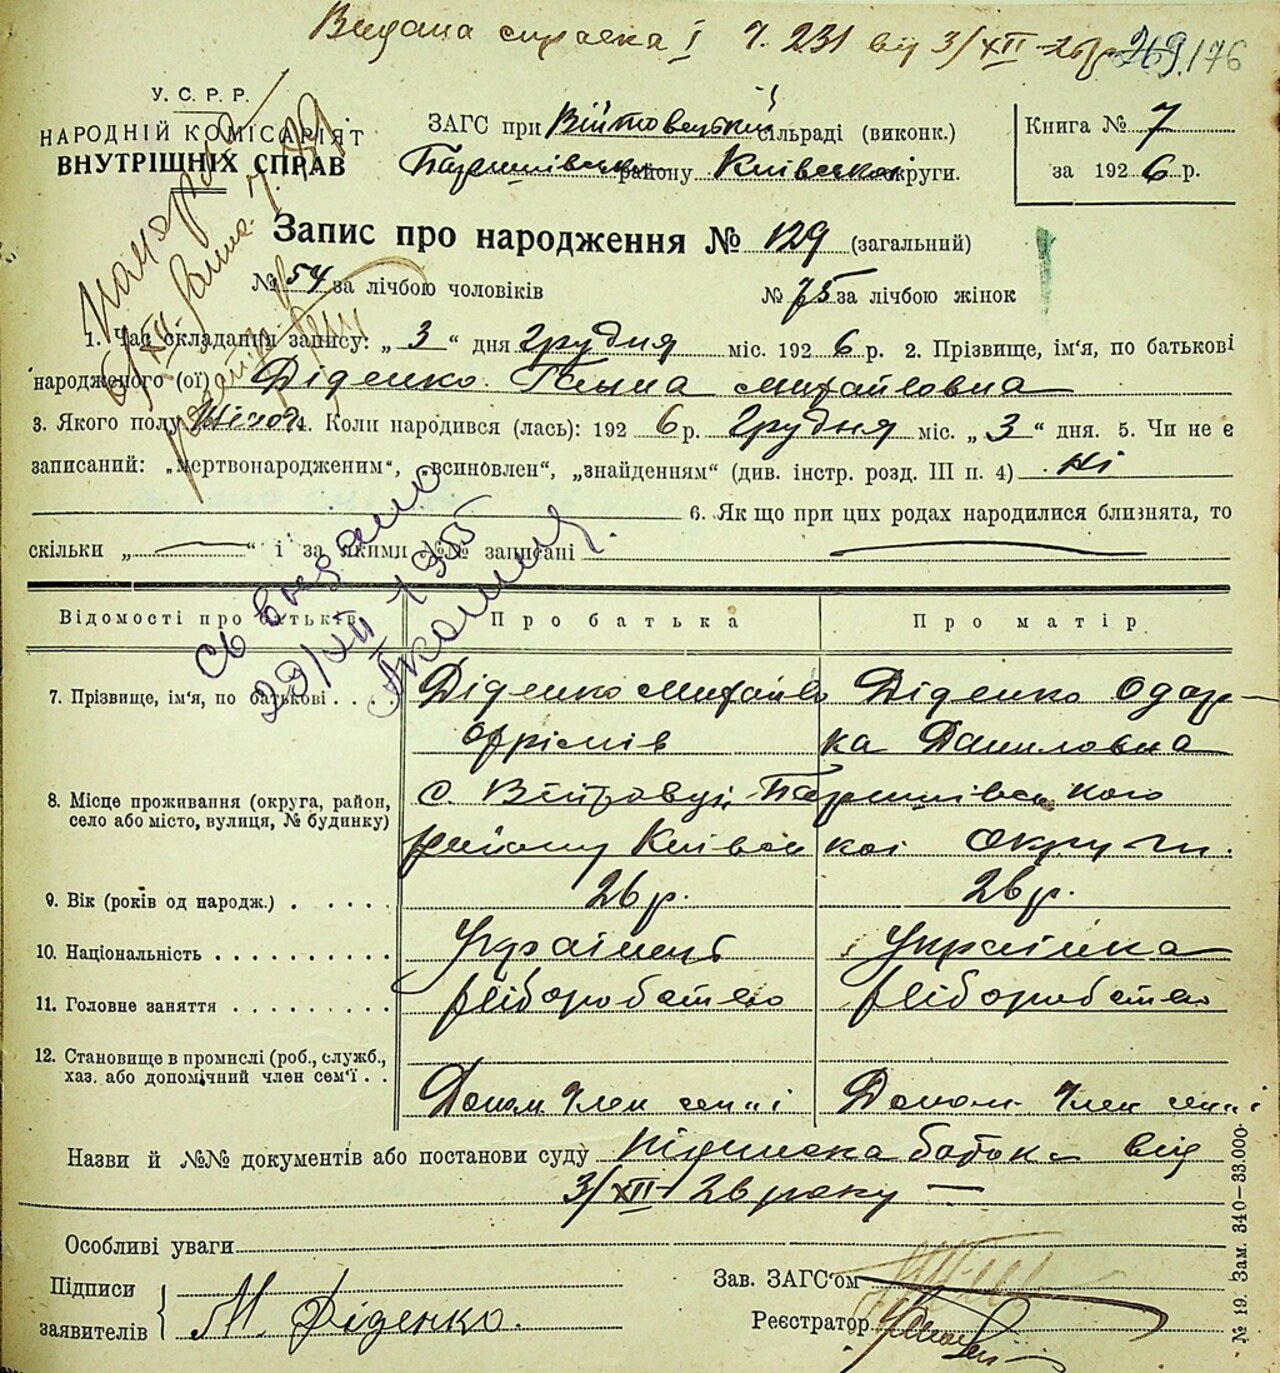 Видана справка і Ч. 231 від 3/XII-26р. 269/76
У. С. Р. Р.
НАРОДНІЙ КОМІСАРІЯТ
ВНУТРІШНІХ СПРАВ
ЗАГС при Війтовецькій сільраді (виконк.)
Баришівськ району Київської округи.
Книга № 7
за 1926 р.
Запис про народження № 129 (загальний)
№ 54 за лічбою чоловіків № 75 за лічбою жінок
1. Час складання запису: „ 3 “ дня грудня міс. 1926 р. 2. Прізвище, ім'я, по батькові
народженого (ої) Діденко Ганна Михайловна
3. Якого полу Жіноч. 4. Коли народився (лась): 1926 р. грудня міс. „ 3 “ дня. 5. Чи не є
записаний: „мертвонародженим“, „всиновлен“, „знайденням“ (див. інстр. розд. III п. 4) Ні
6. Як що при цих родах народилися близнята, то
скільки „ — “ і за якими №№ записані —
Св видано
29/XII 1955
Відомості про батьків Про батька Про матір
7. Прізвище, ім'я, по батькові . . . . Діденко Михайло Діденко Одар-
Охрімів ка Даниловна
8. Місце проживання (округа, район,
село або місто, вулиця, № будинку)
с. Війтовці, Баришівського
району Київської Округи.
9. Вік (років од народж.) . . . . . 26 р. 26 р.
10. Національність . . . . . . . . . . Українець Українка
11. Головне заняття . . . . . . . . . хліборобство хліборобство
12. Становище в промислі (роб., служб.,
хаз. або допомічний член сем'ї . .
Допом. Член сем'ї Допом. Член сем'ї
Назви й №№ документів або постанови суду підписка батька від
3/XII 26 року —
Особливі уваги
Підписи
заявителів
М. Діденко.
Зав. ЗАГС'ом
Реєстратор
№ 19. Зам. 340—33.000.